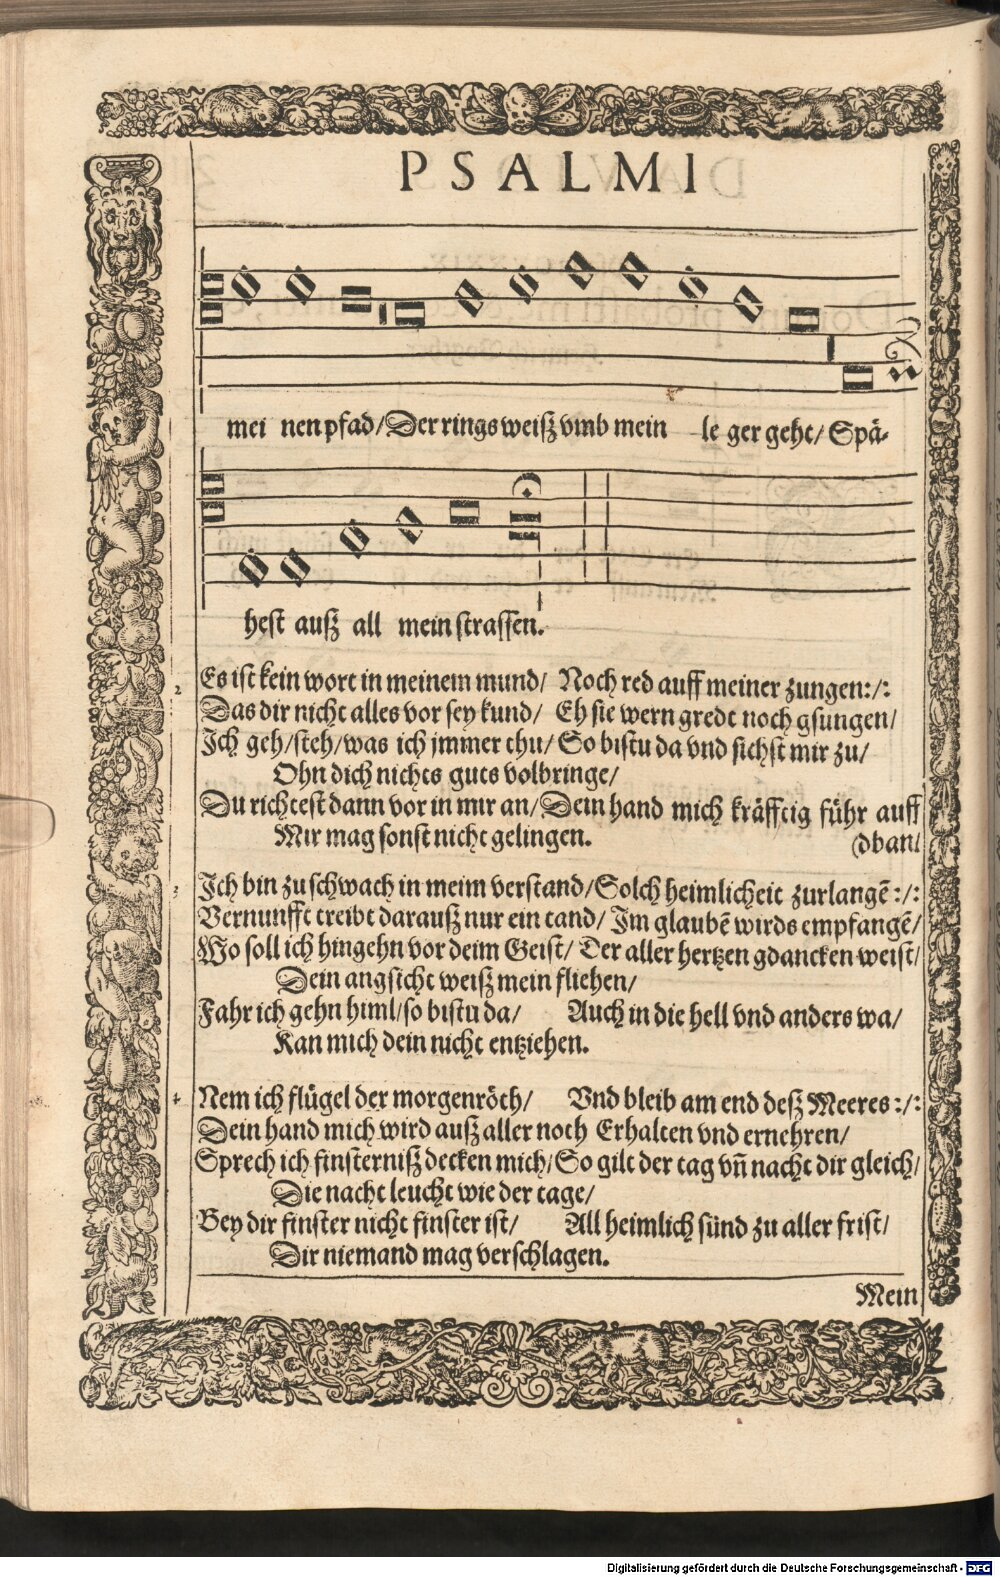 PSALMI
mei nen pfad/ Der rings weiß vmb mein le ger geht/ Spä-
hest auß all mein strassen.
2 Es ist kein wort in meinem mund/ Noch red auff meiner zungen:/:
Das dir nicht alles vor sey kund/ Eh sie wern gredt noch gsungen/
Ich geh/steh/was ich jmmer thu/ So bistu da vnd sichst mir zu/
Ohn dich nichts guts volbringe/
Du richtest dann vor in mir an/ Dein hand mich kräfftig führ auff
Mir mag sonst nicht gelingen. (dban/
3 Ich bin zu schwach in meim verstand/ Solch heimlicheit zurlangē:/:
Vernunfft treibt darauß nur ein tand/ Im glaubē wirds empfangē/
Wo soll ich hingehn vor deim Geist/ Der aller hertzen gdancken weist/
Dein angsicht weiß mein fliehen/
Fahr ich gehn himl/so bistu da/ Auch in die hell vnd anders wa/
Kan mich dein nicht entziehen.
4 Nem ich flügel der morgenröth/ Vnd bleib am end deß Meeres:/:
Dein hand mich wird auß aller noth Erhalten vnd ernehren/
Sprech ich finsterniß decken mich/ So gilt der tag vn̄ nacht dir gleich/
Die nacht leucht wie der tage/
Bey dir finster nicht finster ist/ All heimlich sünd zu aller frist/
Dir niemand mag verschlagen.
Mein
Digitalisierung gefördert durch die Deutsche Forschungsgemeinschaft - DFG